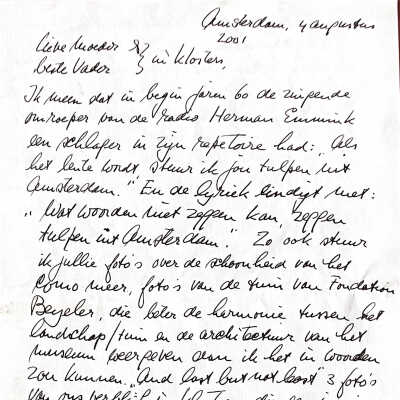 Amsterdam, 4 augustus
2001
lieve Moeder &
beste Vader } in Klosters,
Ik meen dat in begin jaren 60 de zingende
omroeper van de radio Herman Emmink
een schlager in zijn repetoire had: „Als
het lente wordt, stuur ik jou tulpen uit
Amsterdam." En de lyriek eindigt met:
„Wat woorden niet zeggen kan, zeggen
tulpen uit Amsterdam." Zo ook stuur
ik jullie foto's over de schoonheid van het
Como meer, foto's van de tuin van Fondation
Beyeler, die béter de harmonie tussen het
landschap/tuin en de architectuur van het
museum weergeven dan ik het in woorden
zou kunnen. „And last but not least" 3 foto's
van ons verblijf in